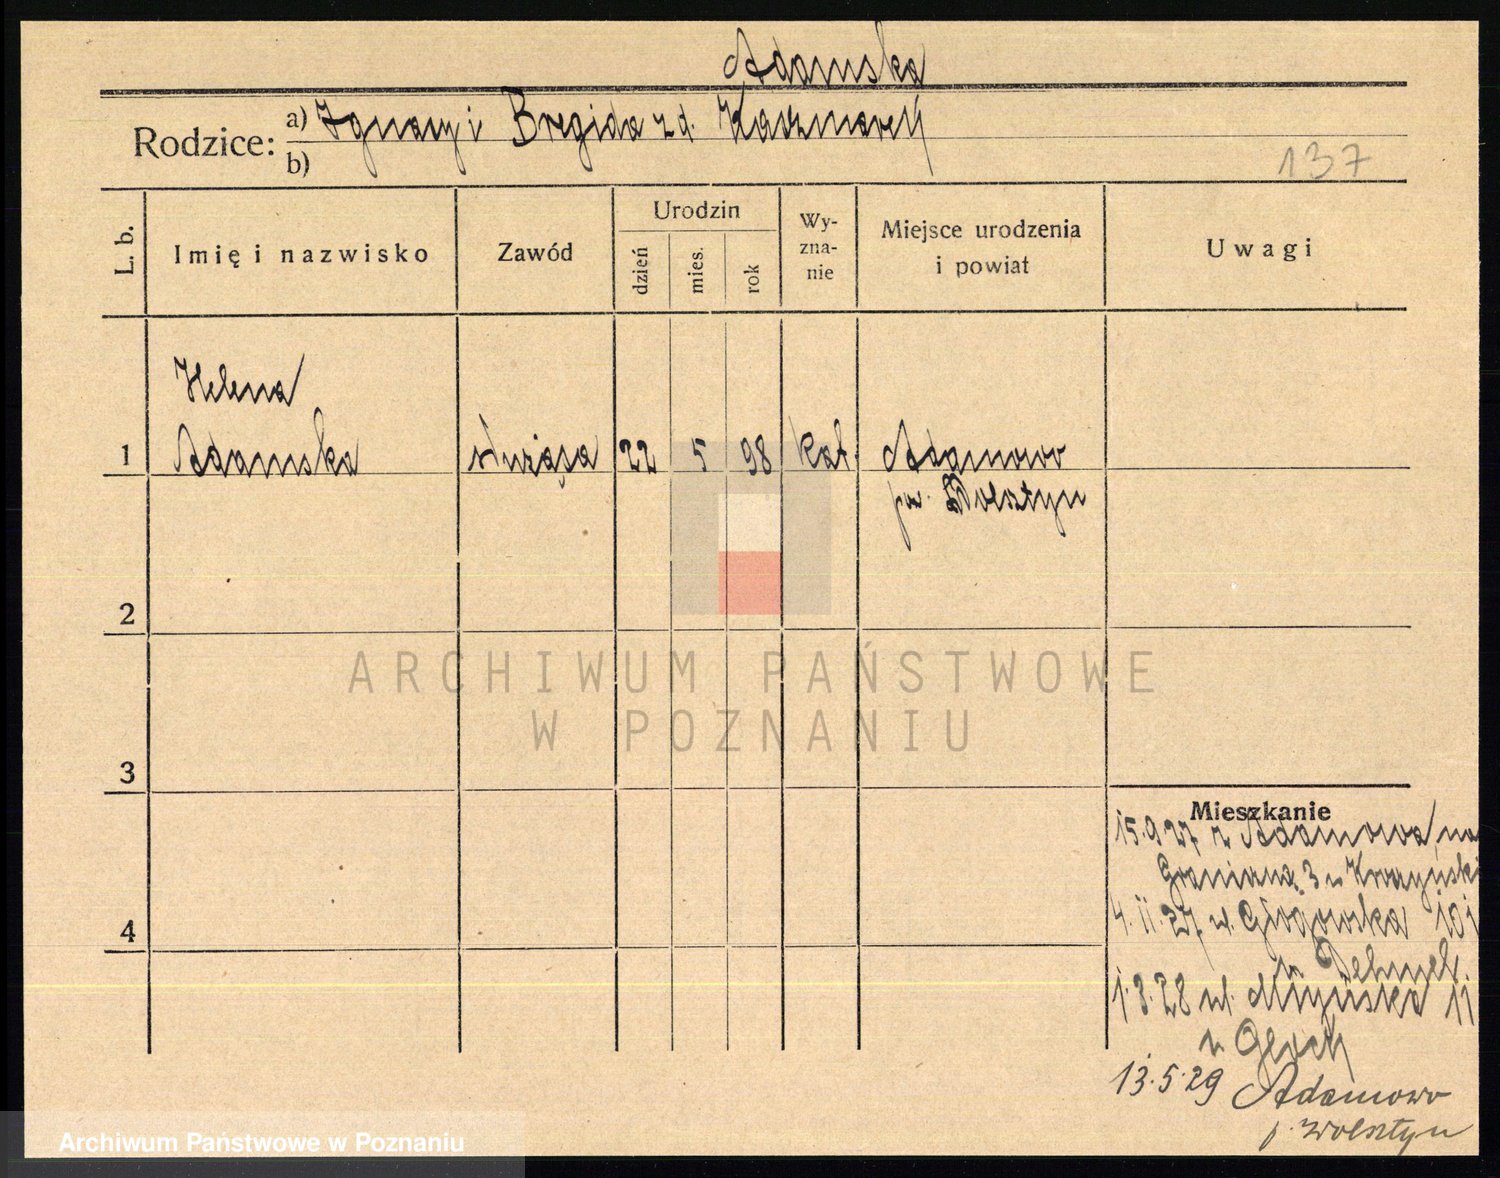 Adamska
Rodzice: a) Ignacy i Bregida z d. Kaczmarek
b)
137
L. b.
Imię i nazwisko
Zawód
Urodzin
dzień
mies.
rok
Wy-
zna-
nie
Miejsce urodzenia
i powiat
Uwagi
Helena
1 Adamska służąca 22 5 98 kat. Adamowo
pow. Wolsztyn
2
3
4
Mieszkanie
15.9.27 z Adamowa, na
Graniczna 3
4.11.27 ul. Głogowska 101
1.3.28 ul. 11
13.5.29 Adamowo
p. Wolsztyn
ARCHIWUM PAŃSTWOWE
W POZNANIU
Archiwum Państwowe w Poznaniu